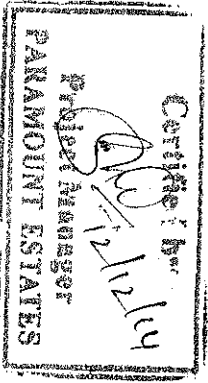 Certified by
12/12/14
Project Manager
PARAMOUNT ESTATES